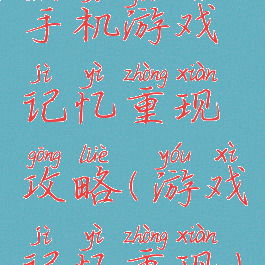 手机游戏
jì yì zhòng xiàn
记忆重现
gōng lüè yóu xì
攻略(游戏
jì yì zhòng xiàn
记忆重现)